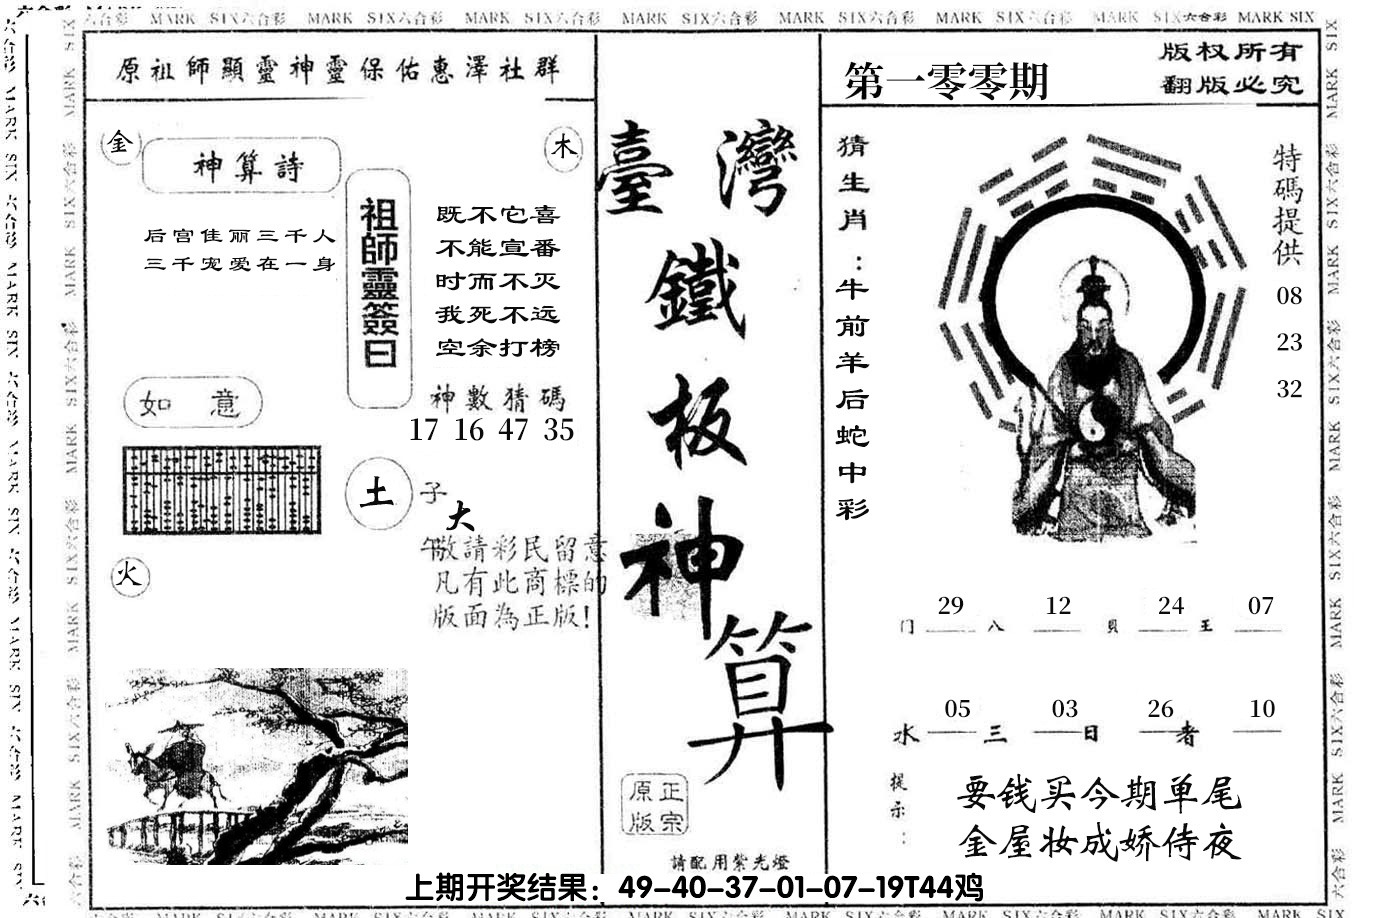 六合彩 MARK SIX六合彩 MARK SIX六合彩 MARK SIX六合彩 MARK SIX六合彩 MARK SIX六合彩 MARK SIX六合彩 MARK SIX六合彩 MARK SIX
原祖師顯靈神靈保佑惠澤社群
金
神算詩
木
后宫佳丽三千人
三千宠爱在一身
祖師靈簽曰
既不它喜
不能宣番
时而不灭
我死不远
空余打榜
神數猜碼
17 16 47 35
如 意
土
子
大
午
敬請彩民留意
凡有此商標的
版面為正版!
火
臺灣
鐵
板
神
算
原正
版宗
請配用紫光燈
第一零零期
版权所有
翻版必究
猜生肖:牛前羊后蛇中彩
特碼提供
08
23
32
29 12 24 07
门 八 貝 王
05 03 26 10
水 三 日 者
提示:
要钱买今期单尾
金屋妆成娇侍夜
上期开奖结果：49-40-37-01-07-19T44鸡